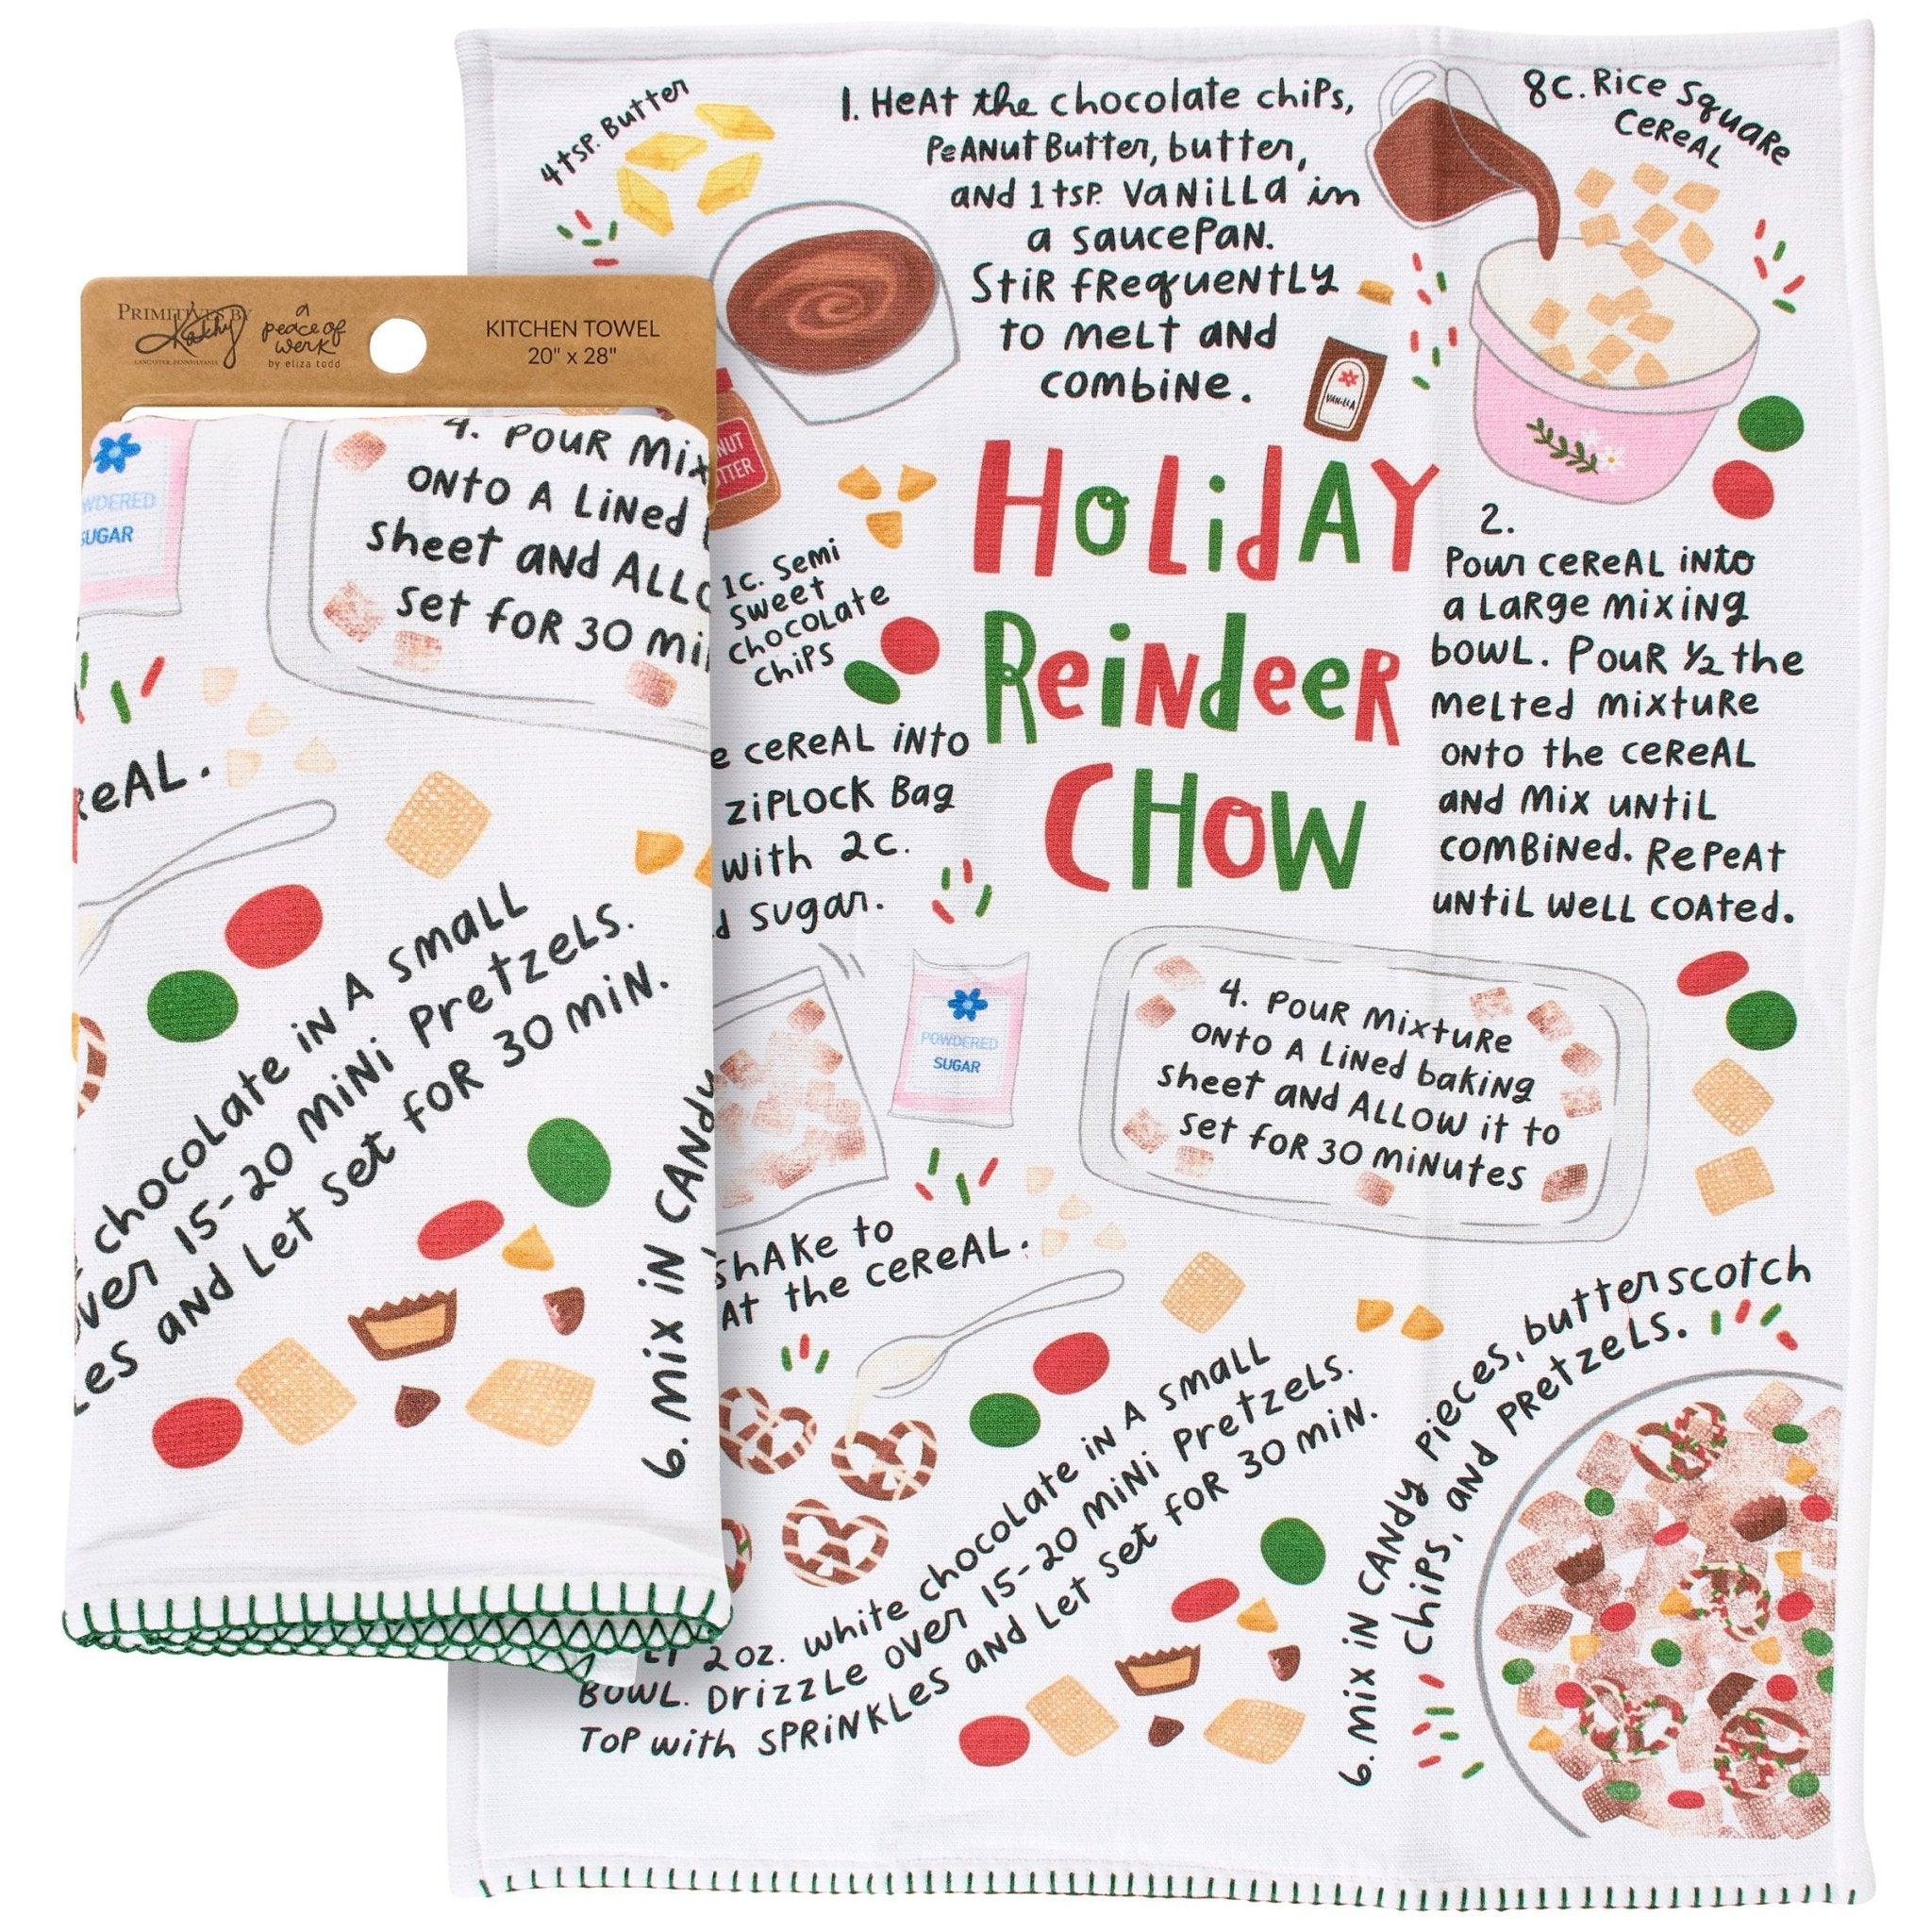 4 tsp. Butter
1. Heat the chocolate chips,
Peanut Butter, butter,
and 1 tsp. vanilla in
a saucepan.
Stir frequently
to melt and
combine.
8c. Rice Square
Cereal
VANILLA
PRIMITIVES BY
Kathy
LANCASTER, PENNSYLVANIA
a
peace of
werk
by eliza todd
KITCHEN TOWEL
20" x 28"
4. Pour mix
onto a lined
sheet and allo
set for 30 mi
WDERED
SUGAR
real.
chocolate in a small
ver 15-20 mini pretzels.
es and let set for 30 min.
6. mix in candy
NUT
TTER
1c. Semi
sweet
chocolate
chips
Holiday
Reindeer
Chow
2.
Pour cereal into
a large mixing
bowl. Pour 1/2 the
melted mixture
onto the cereal
and mix until
combined. Repeat
until well coated.
e cereal into
ziplock bag
with 2c.
d sugar.
POWDERED
SUGAR
shake to
at the cereal.
4. Pour mixture
onto a lined baking
sheet and allow it to
set for 30 minutes
LT 2 oz. white chocolate in a small
bowl. Drizzle over 15-20 mini pretzels.
Top with sprinkles and let set for 30 min.
6. mix in candy pieces, butterscotch
chips, and pretzels.